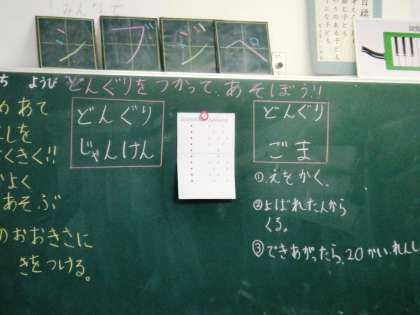 みんなで
シ
ブ
ジ
ペ
ち ようび
どんぐりをつかって、あそぼう!!
めあて
しを
くさく!!
よく
あそぶ
のおおきさに
きをつける。
どんぐり
じゃんけん
どんぐり
ごま
①えをかく。
②よばれた人から
くる。
③できあがったら、20かい、れんし